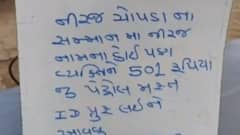 નીરજ ચોપડા ના
સન્માન મા નીરજ
નામના કોઈ પણ
વ્યક્તિને 501 રૂપિયા
નુ પેટ્રોલ મફત
ID પ્રુફ લઈને
આવવુ